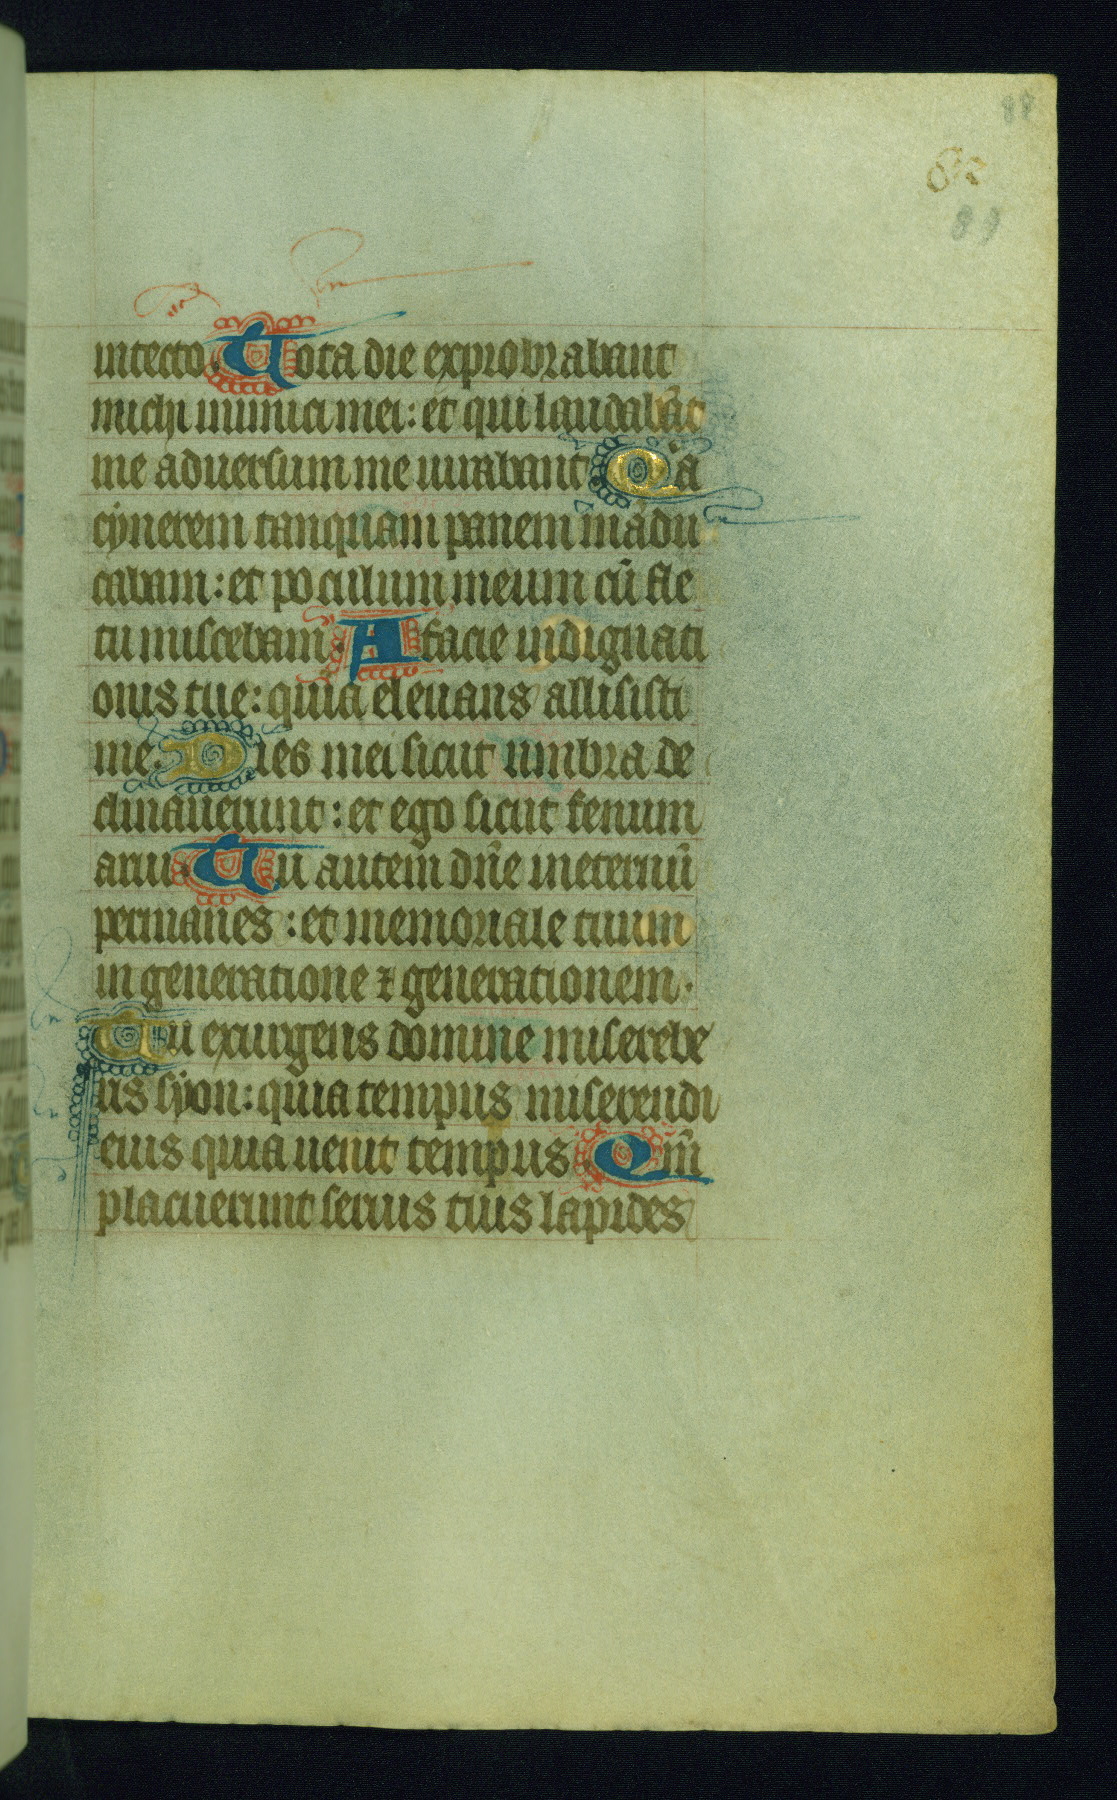 88
62
89
intecto. Tota die exprobrabant
michi inimici mei: et qui laudabāt
me adversum me iurabant Qa
cynerem tanquam panem mādu
cabam: et poculum meum cū fle
tu miscebam. A facie indignati
onis tue: quia elevans allisisti
me. Dies mei sicut umbra de
clinaverunt: et ego sicut fenum
arui. Tu autem dn̄e ineternū
permanes: et memoriale tuum
in generatione ⁊ generationem.
Tu exurgens domine miserebe
us syon: quia tempus miserendi
eius quia uenit tempus. Qm̄
placuerunt seruis tuis lapides